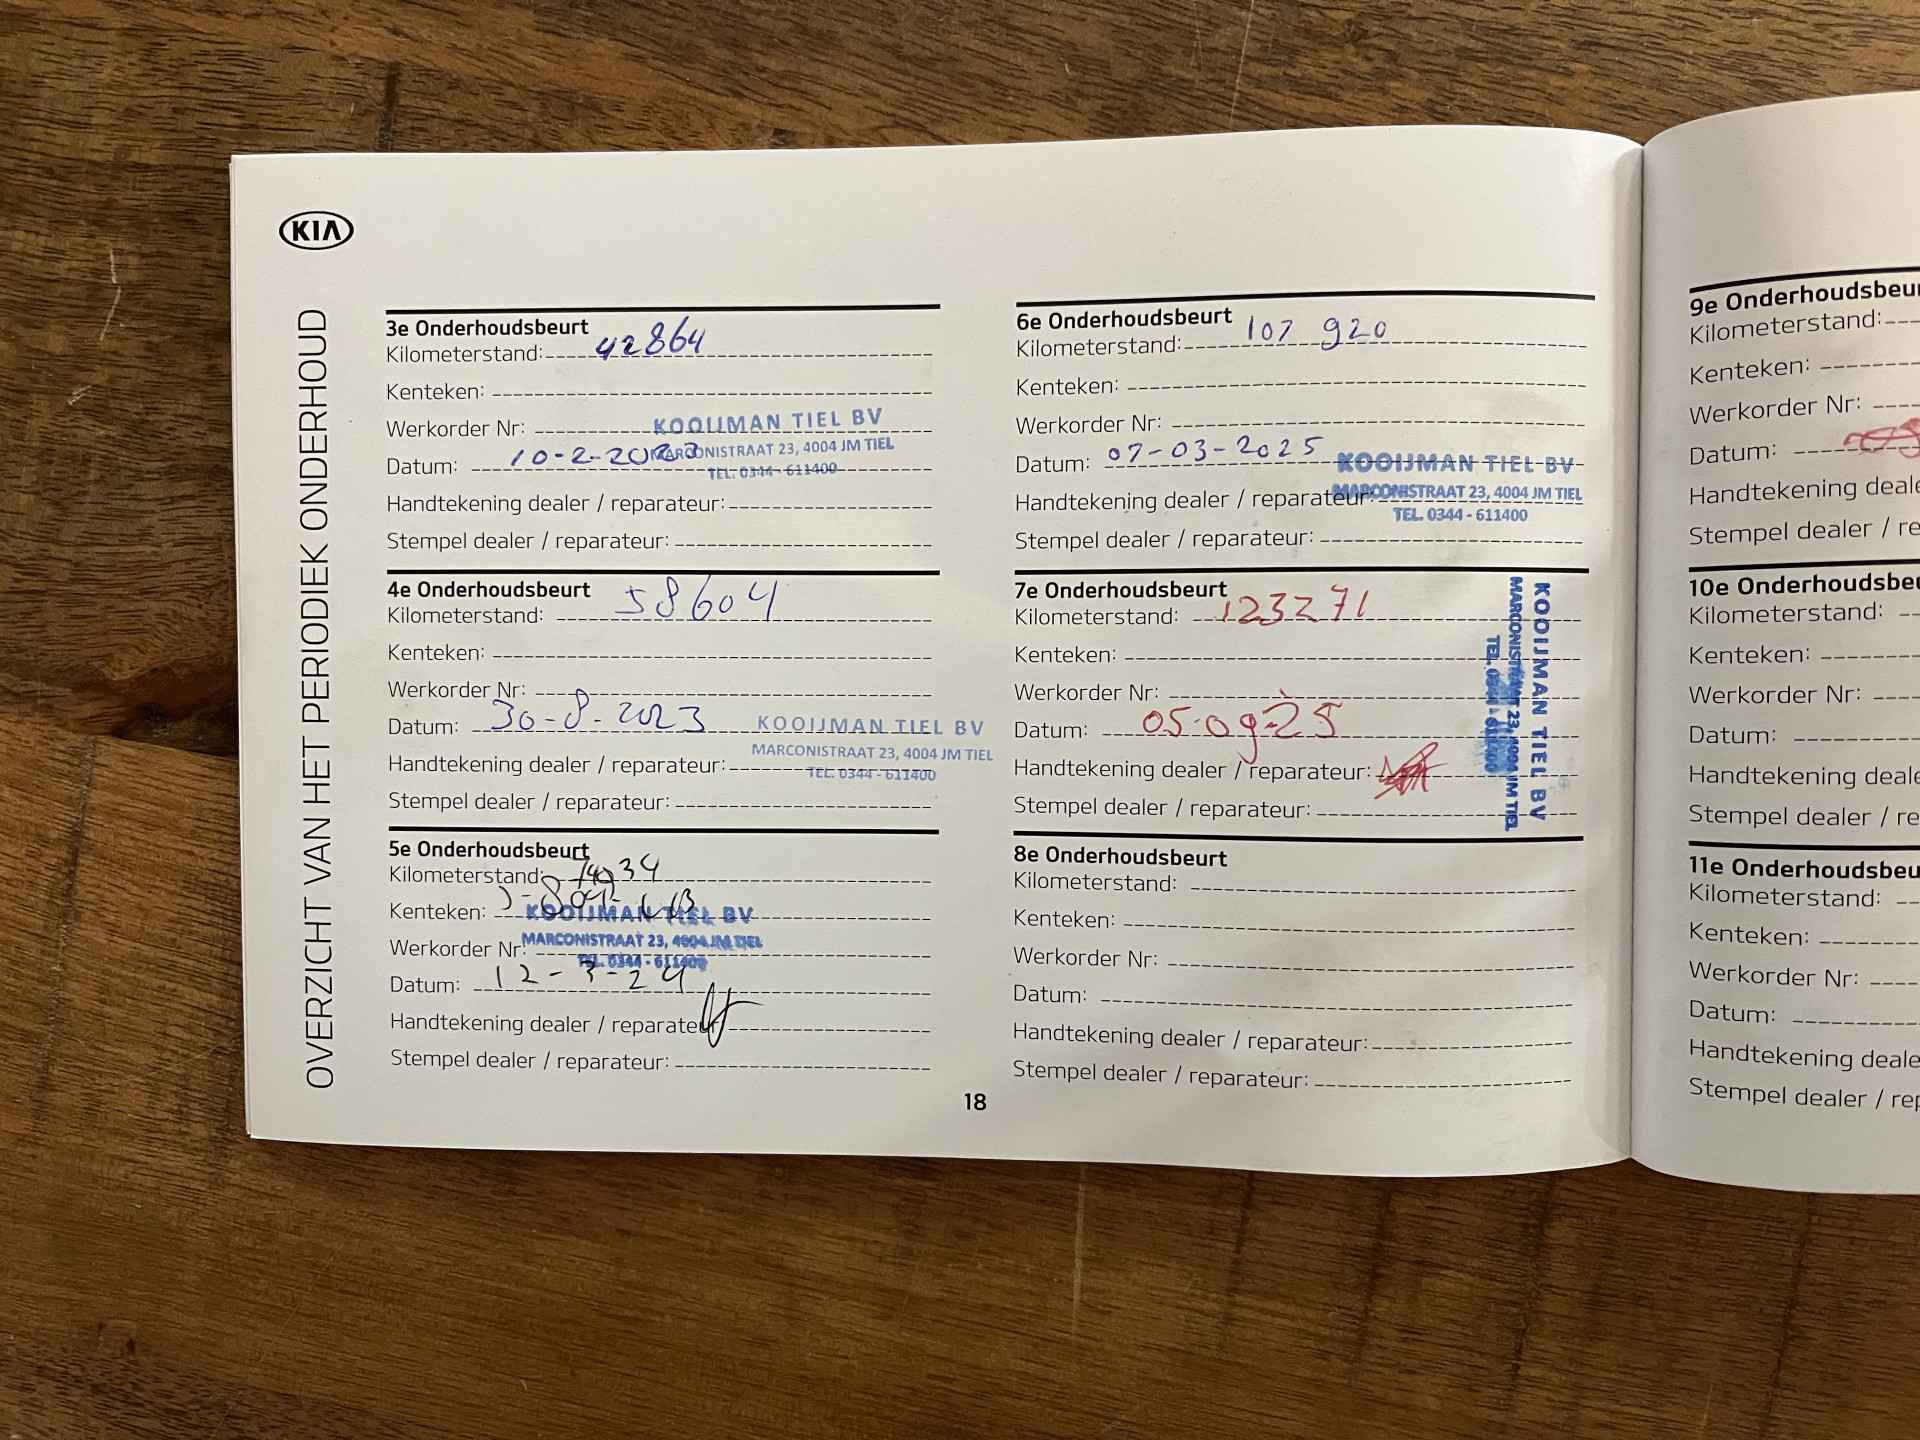 KIA
OVERZICHT VAN HET PERIODIEK ONDERHOUD
3e Onderhoudsbeurt
Kilometerstand: 42864
Kenteken:
Werkorder Nr:
KOOIJMAN TIEL BV
MARCONISTRAAT 23, 4004 JM TIEL
TEL. 0344 - 611400
Datum: 10-2-2023
Handtekening dealer / reparateur:
Stempel dealer / reparateur:
4e Onderhoudsbeurt
Kilometerstand: 58604
Kenteken:
Werkorder Nr:
Datum: 30-8-2023
KOOIJMAN TIEL BV
MARCONISTRAAT 23, 4004 JM TIEL
TEL. 0344 - 611400
Handtekening dealer / reparateur:
Stempel dealer / reparateur:
5e Onderhoudsbeurt
Kilometerstand:
Kenteken:
KOOIJMAN TIEL BV
MARCONISTRAAT 23, 4004 JM TIEL
TEL. 0344 - 611400
Werkorder Nr:
Datum: 12-3-24
Handtekening dealer / reparateur:
Stempel dealer / reparateur:
18
6e Onderhoudsbeurt
Kilometerstand: 107 920
Kenteken:
Werkorder Nr:
Datum: 07-03-2025
KOOIJMAN TIEL BV
MARCONISTRAAT 23, 4004 JM TIEL
TEL. 0344 - 611400
Handtekening dealer / reparateur:
Stempel dealer / reparateur:
7e Onderhoudsbeurt
Kilometerstand: 123271
Kenteken:
Werkorder Nr:
Datum: 05-09-25
Handtekening dealer / reparateur:
Stempel dealer / reparateur:
KOOIJMAN TIEL BV
MARCONISTRAAT 23, 4004 JM TIEL
TEL. 0344 - 611400
8e Onderhoudsbeurt
Kilometerstand:
Kenteken:
Werkorder Nr:
Datum:
Handtekening dealer / reparateur:
Stempel dealer / reparateur:
9e Onderhoudsbeur
Kilometerstand:
Kenteken:
Werkorder Nr:
Datum:
Handtekening deale
Stempel dealer / re
10e Onderhoudsbeu
Kilometerstand:
Kenteken:
Werkorder Nr:
Datum:
Handtekening deale
Stempel dealer / re
11e Onderhoudsbeu
Kilometerstand:
Kenteken:
Werkorder Nr:
Datum:
Handtekening deale
Stempel dealer / rep